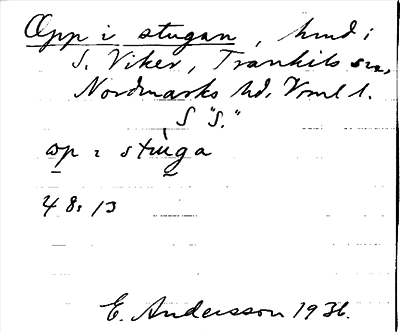 Opp i stugan, hmd i
S. Viker, Trankils sn,
Nordmarks hd. Vrml l.
S "S."
op i stùga
48:13
E. Andersson 1936.